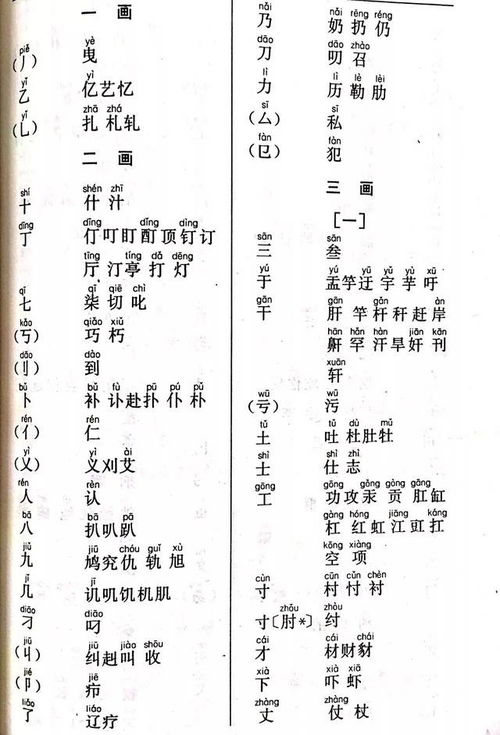 一 画
piě yè
(丿) 曳
yǐ yì
乙 亿艺忆
yǐ zhā zhá
(乚) 扎 札轧
二 画
shí shén zhī
十 什 汁
dīng dīng dǐng dìng
丁 仃叮盯酊顶钉订
tīng tíng dǎ dēng
厅 汀亭 打 灯
qī qī qiē chì
七 柒 切 叱
kǎo qiǎo xiǔ
(丂) 巧 朽
dāo dào
(刂) 到
bǔ bǔ fù pū pú pǔ
卜 补 讣赴扑 仆 朴
rén rén
(亻) 仁
yì yì
(乂) 义刈艾
rén rèn
人 认
bā bā pā
八 扒叭趴
jiǔ jiū chóu guǐ xù
九 鸠究仇 轨 旭
jǐ jī
几 讥叽饥机肌
diāo diāo
刁 叼
jiū jiū jiào shōu
(丩) 纠赳叫 收
jié jiē
(卩) 疖
liǎo liáo
了 辽疗
nǎi nǎi rēng réng
乃 奶 扔 仍
dāo dāo zhào
刀 叨 召
lì lì lè lèi
力 历 勒 肋
sī sī
(厶) 私
fàn fàn
(㔾) 犯
三 画
[一]
sān sān
三 叁
yú yú yū yú yù xū
于 盂竽迂 宇 芋 吁
gān gān gǎn àn
干 肝 竿 杆 秆 赶 岸
hān hǎn hàn jiān kān
鼾 罕 汗旱奸 刊
xuān
轩
wū wū
(亏) 污
tǔ tǔ dù
土 吐 杜肚牡
shì shì zhì
士 仕 志
gōng gōng gǒng gòng gāng
工 功攻汞 贡 肛缸
gàng hóng jiāng káng
杠 红虹江豇 扛
kōng xiàng
空 项
cùn cūn cǔn chèn
寸 村 忖 衬
zhǒu zhòu
寸〔肘*〕 纣
cái cái chái
才 材财豺
xià xià xiā
下 吓 虾
zhàng zhàng
丈 仗 杖